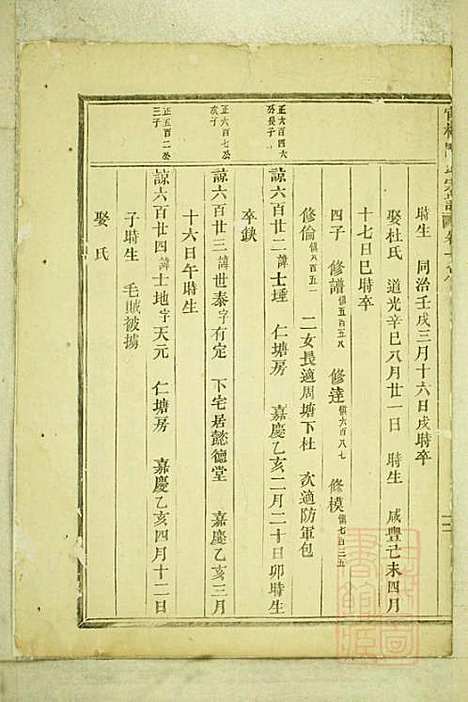 時生 同治壬戌三月十六日戌時卒
娶杜氏 道光辛巳八月廿一日 時生 咸豐己未四月
十七日巳時卒
四子 修譜慎五百五八 修達慎六百八七 修模慎七百三五
修倫慎八百五一 二女長適周塘下杜 次適防軍包
正六百四六公長子
諒六百廿二諱士埵 仁塘房 嘉慶乙亥二月二十日卯時生
卒缺
正六百七公次子
諒六百廿三諱世泰字有定 下宅居懿德堂 嘉慶乙亥三月
十六日午時生
正五百二公三子
諒六百廿四諱士地字天元 仁塘房 嘉慶乙亥四月十二日
子時生 毛賊被擄
娶 氏